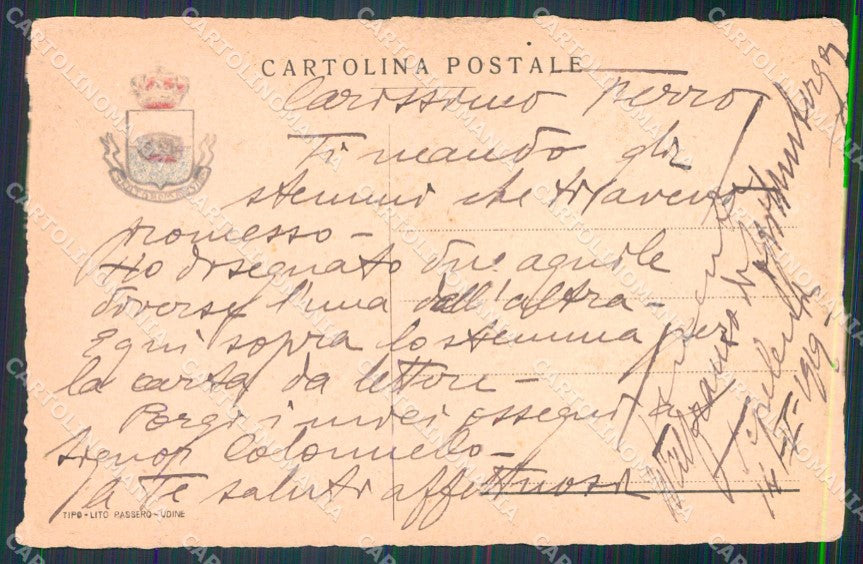 CARTOLINA POSTALE
Carissimo
Ti mando gli
stemmi che ti avevo
promesso -
Ho disegnato due aquile
diverse l'una dall'altra -
Egni sopra lo stemma per
la carta da lettere -
Porgi i miei ossequi al
signor Colonnello -
A Te saluti affettuosi
14 1919 -
TIPO - LITO PASSERO - UDINE
CARTOLINOMANIA